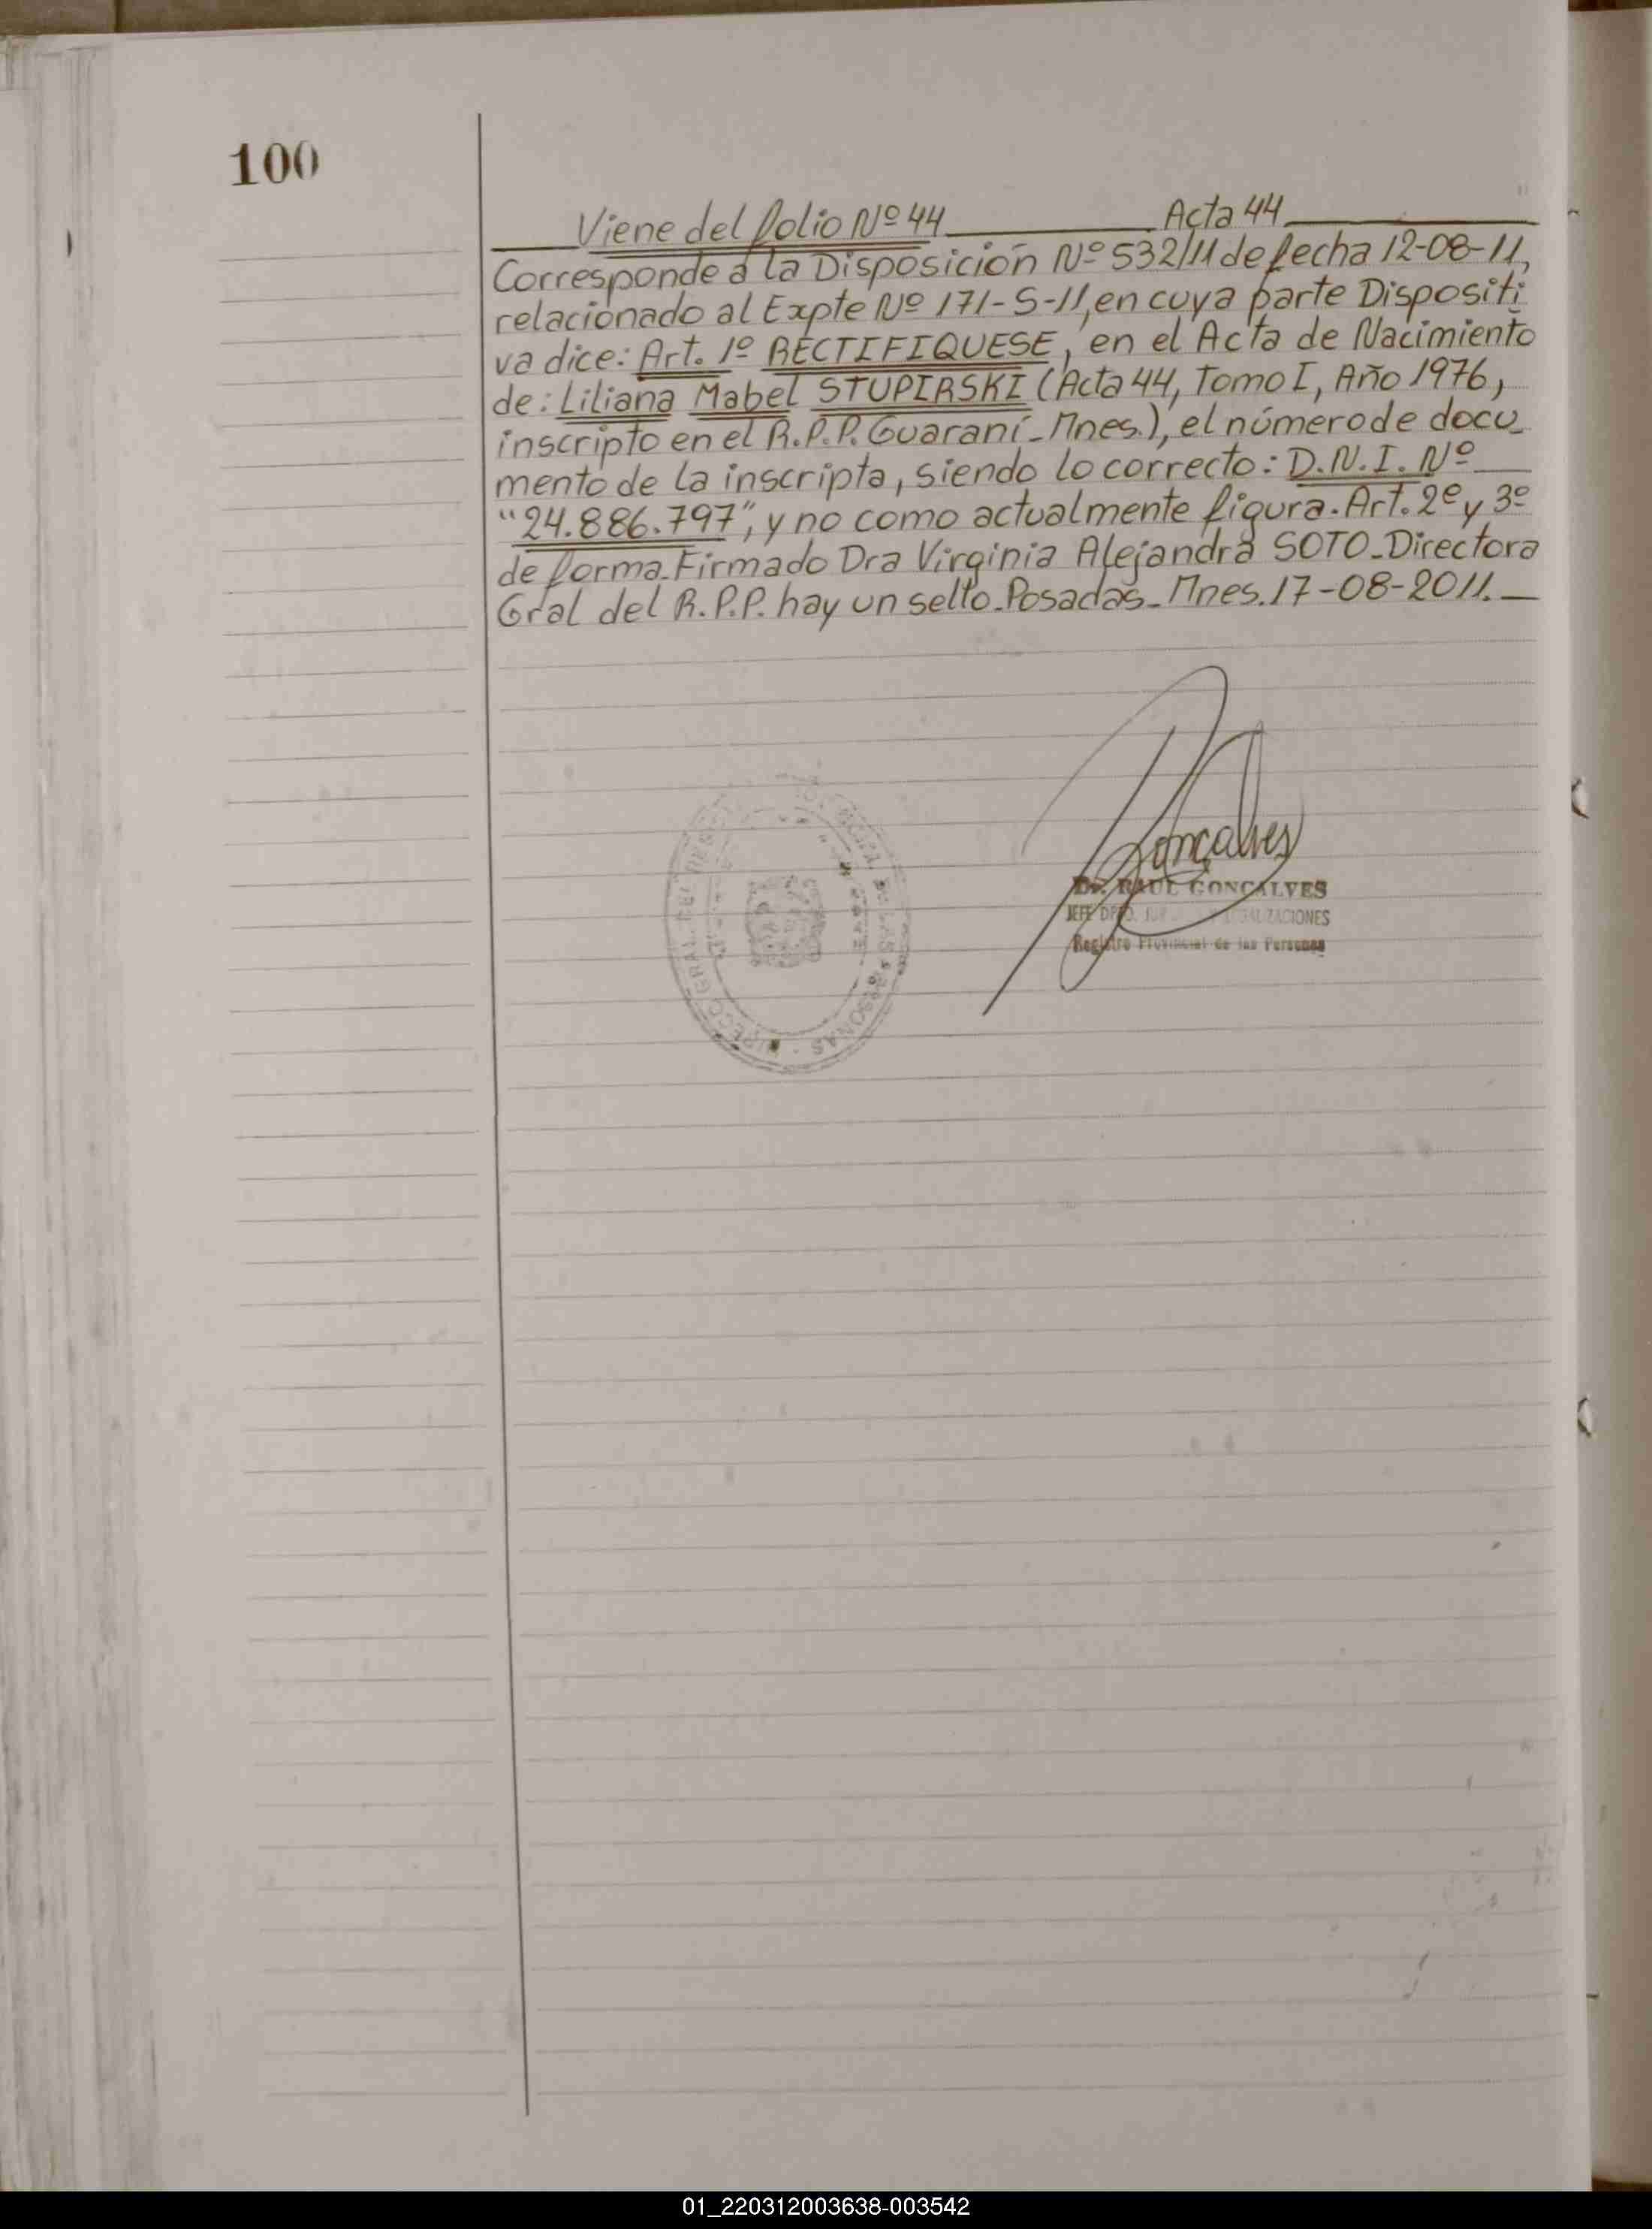 100
Viene del folio Nº 44 Acta 44
Corresponde a la Disposición Nº 532/11 de fecha 12-08-11,
relacionado al Expte Nº 171-S-11, en cuya parte Dispositi
va dice: Art. 1º RECTIFIQUESE, en el Acta de Nacimiento
de: Liliana Mabel STUPIRSKI (Acta 44, Tomo I, Año 1976,
inscripto en el R.P.P. Guaraní - Mnes.), el número de docu_
mento de la inscripta, siendo lo correcto: D.N.I. Nº
"24.886.797", y no como actualmente figura. Art. 2º y 3º
de forma. Firmado Dra Virginia Alejandra SOTO - Directora
Gral del R.P.P. hay un sello. Posadas - Mnes. 17-08-2011.
Goncalves
Dr. RAUL GONCALVES
JEFE DPTO.
Registro Provincial de las Personas
DIRECC. GRAL. DEL
DE LAS PERSONAS
01_220312003638-003542